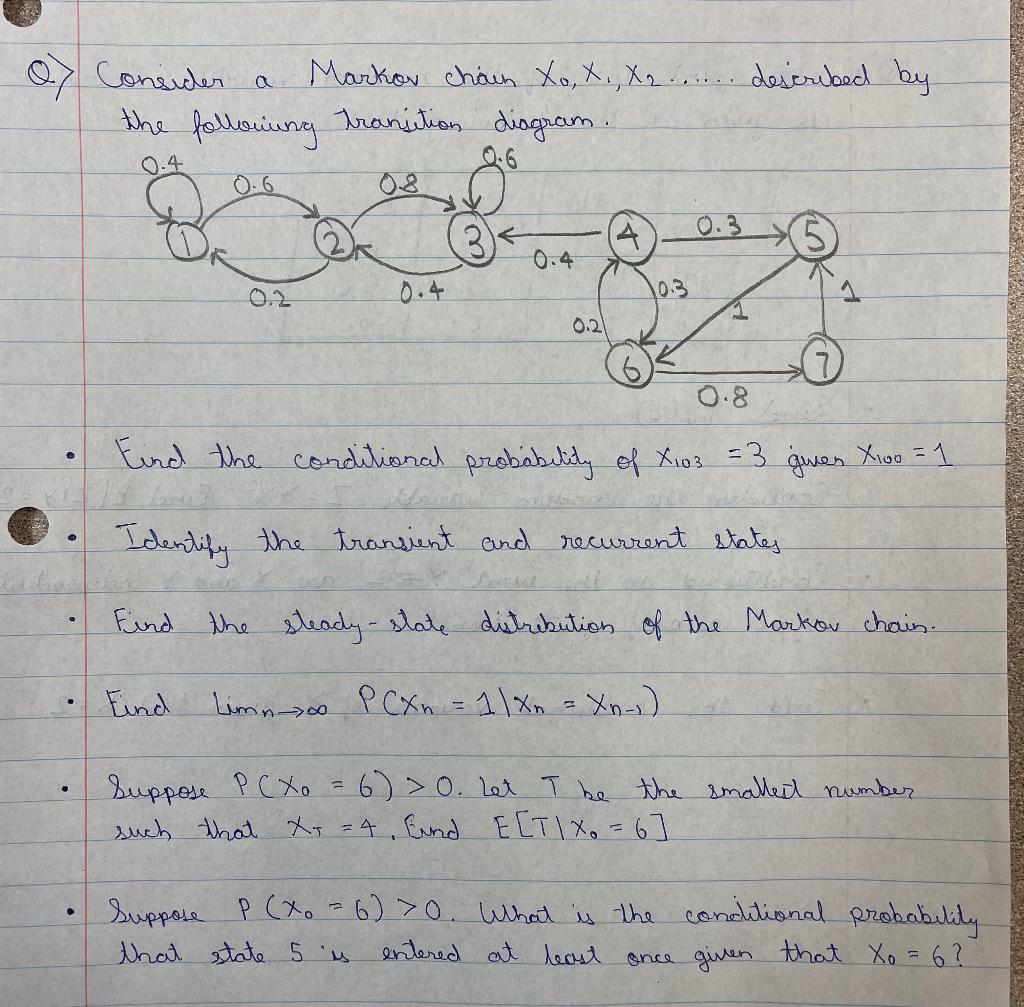 Q) Consider a Markov chain X0, X1, X2 ...... described by
the following transition diagram.
0.4 0.6 0.8 0.6
1 2 3 4 0.3 5
0.2 0.4 0.4 0.3 1
0.2 1
6 7
0.8
• Find the conditional probability of X103 = 3 given X100 = 1
• Identify the transient and recurrent states
• Find the steady-state distribution of the Markov chain.
• Find Lim n→∞ P(Xn = 1 | Xn = Xn-1)
• Suppose P(X0 = 6) > 0. Let T be the smallest number
such that XT = 4. Find E[T|X0 = 6]
• Suppose P(X0 = 6) > 0. What is the conditional probability
that state 5 is entered at least once given that X0 = 6?